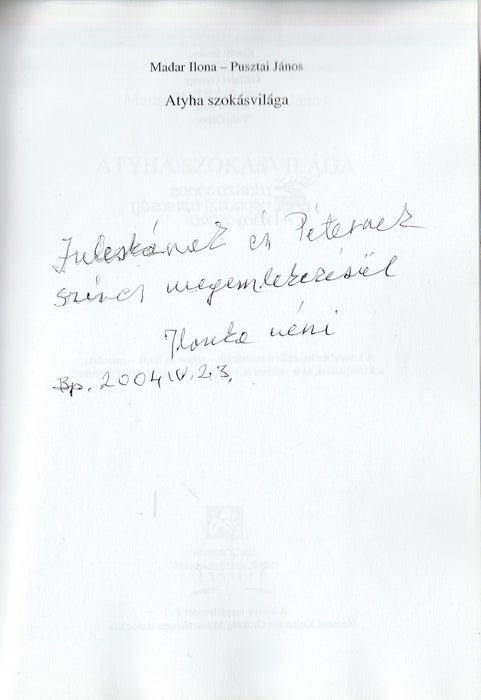 Madar Ilona – Pusztai János
Atyha szokásvilága
Juleskának és Péternek
szíves megemlékezésül
Ilonka néni
Bp. 2004 IV. 23.
ATYHA SZOKÁSVILÁGA